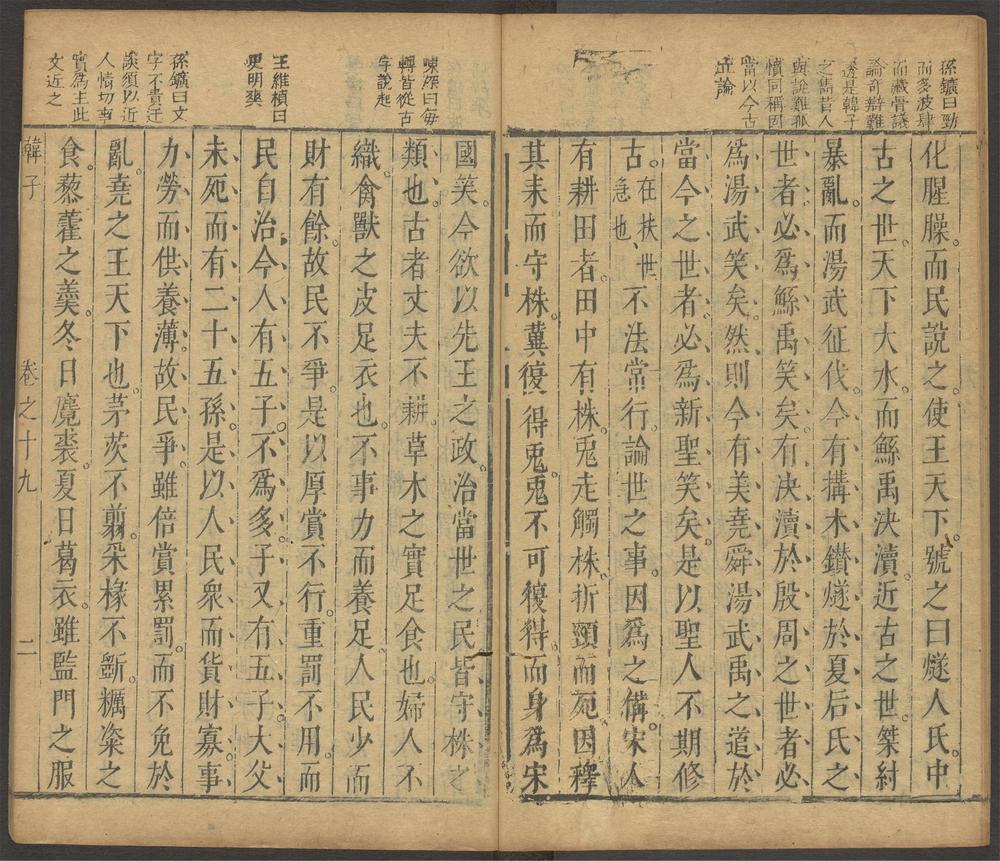 孫鑛曰勁
而多波肆
而藏骨議
論奇辯難
透是韓子
之雋昔人
與說難孤
憤同稱因
當以今古
立論
化腥臊而民說之使王天下號之曰燧人氏中
古之世天下大水而鯀禹決瀆近古之世桀紂
暴亂而湯武征伐今有搆木鑽燧於夏后氏之
世者必爲鯀禹笑矣有決瀆於殷周之世者必
爲湯武笑矣然則今有美堯舜湯武禹之道於
當今之世者必爲新聖笑矣是以聖人不期修
古在扶世急也不法常行論世之事因爲之備宋人
有耕田者田中有株兎走觸株折頸而死因釋
其耒而守株冀復得兎兎不可復得而身爲宋
陳深曰每
轉皆從古
字說起
王維楨曰
更明爽
孫鑛曰文
字不貴迂
談須以近
人情切事
實爲主此
文近之
國笑今欲以先王之政治當世之民皆守株之
類也古者丈夫不耕草木之實足食也婦人不
織禽獸之皮足衣也不事力而養足人民少而
財有餘故民不爭是以厚賞不行重罰不用而
民自治今人有五子不爲多子又有五子大父
未死而有二十五孫是以人民衆而貨財寡事
力勞而供養薄故民爭雖倍賞累罰而不免於
亂堯之王天下也茅茨不翦采椽不斲糲粢之
食藜藿之羹冬日麑裘夏日葛衣雖監門之服
韓子 卷之十九 二